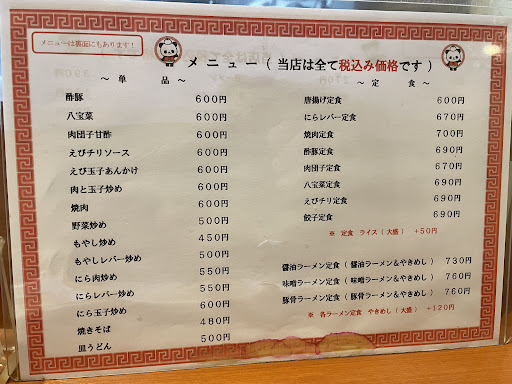 メニューは裏面にもあります！
メニュー（当店は全て税込み価格です）
～ 単 品 ～
酢豚 600円
八宝菜 600円
肉団子甘酢 600円
えびチリソース 600円
えび玉子あんかけ 600円
肉と玉子炒め 600円
焼肉 600円
野菜炒め 500円
もやし炒め 450円
もやしレバー炒め 500円
にら肉炒め 550円
にらレバー炒め 550円
にら玉子炒め 600円
焼きそば 480円
皿うどん 500円
～ 定 食 ～
唐揚げ定食 600円
にらレバー定食 670円
焼肉定食 700円
酢豚定食 690円
肉団子定食 670円
八宝菜定食 690円
えびチリ定食 690円
餃子定食 690円
※ 定食 ライス（大盛）+50円
醤油ラーメン定食（醤油ラーメン&やきめし）730円
味噌ラーメン定食（味噌ラーメン&やきめし）760円
豚骨ラーメン定食（豚骨ラーメン&やきめし）760円
※ 各ラーメン定食 やきめし（大盛）+120円